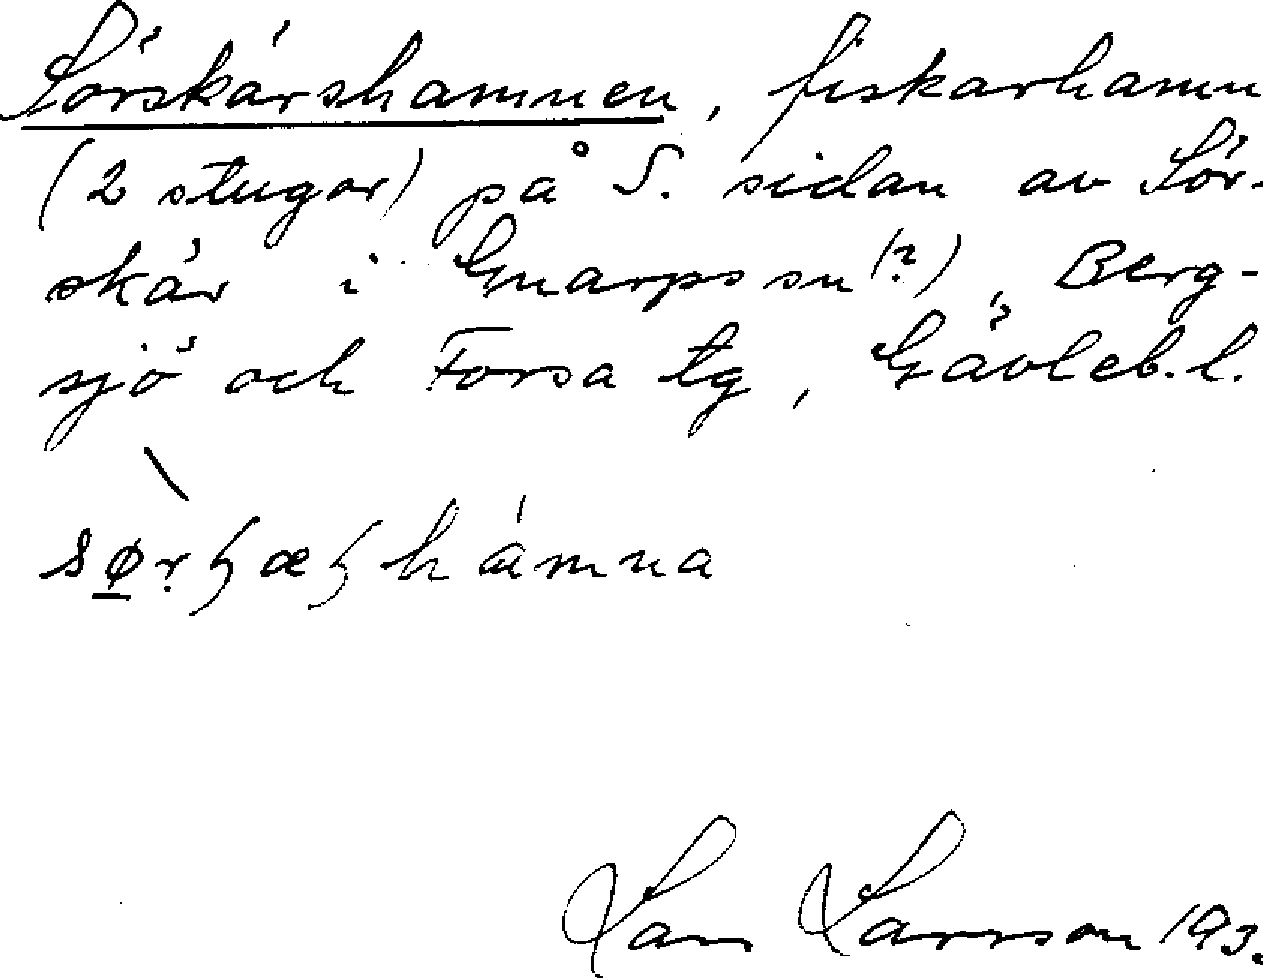 Sörskärshamnen, fiskarhamn
(2 stugor) på S. sidan av Sör-
skär i Gnarps sn (?), Berg-
sjö och Forsa tg, Gävleb. l.
Lars Larsson 193